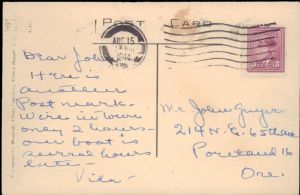 POST CARD
AUG 15
1944
Dear John
Here is
another
Post mark.
We're in town
only 2 hours -
our boat is
several hours
late -
Vida -
Mr John Guyer
214 N.E. 65th Ave
Portland 16
Ore.
3